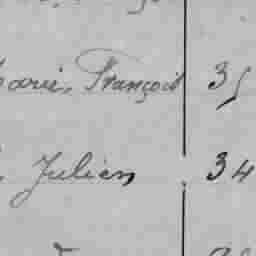 Marie, François 35
Julien 34